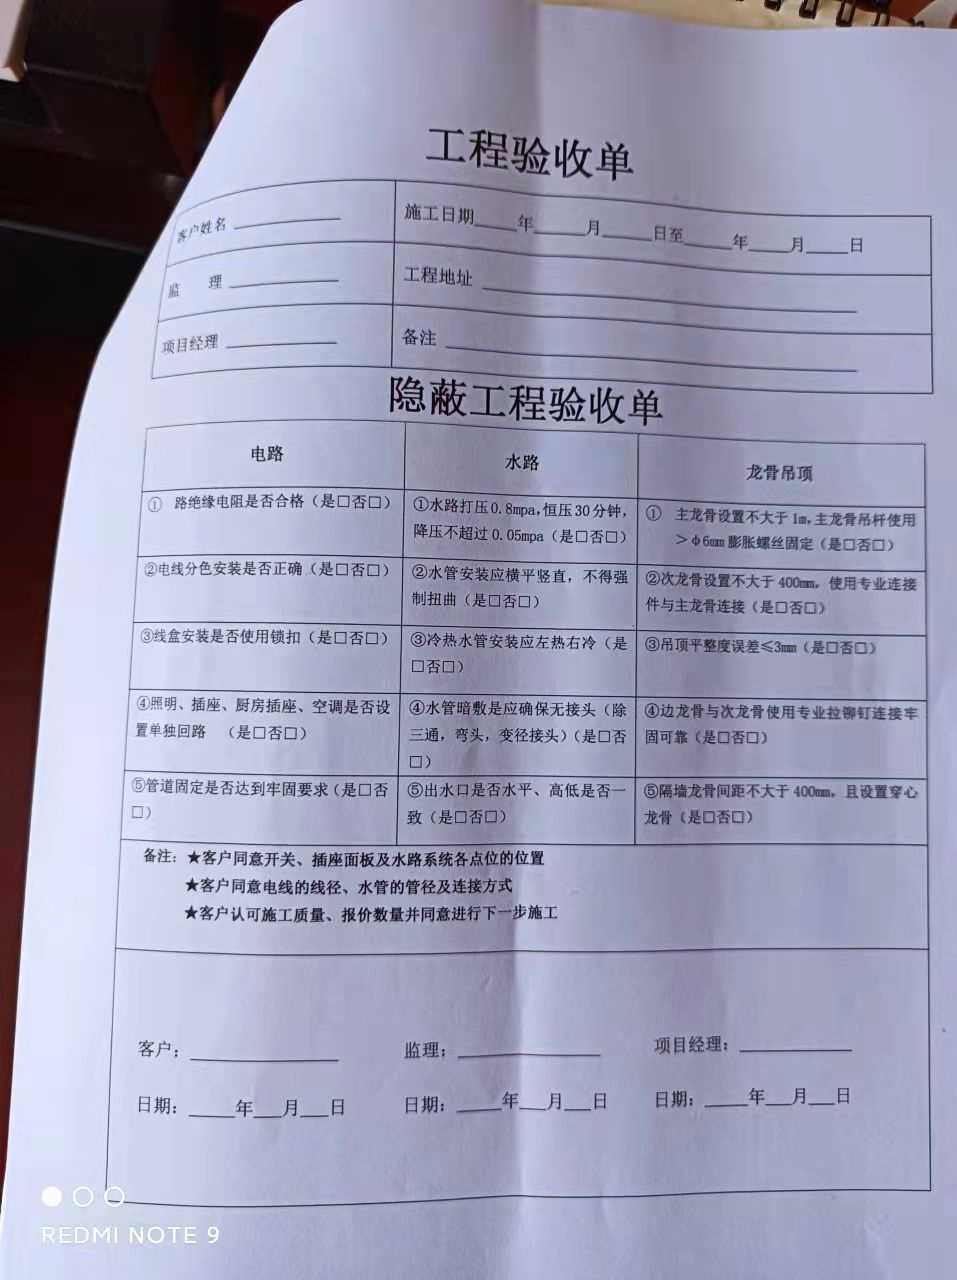 工程验收单
客户姓名________ 施工日期____年____月____日至____年____月____日
监 理________ 工程地址________
项目经理________ 备注________
隐蔽工程验收单
电路 水路 龙骨吊顶
① 路绝缘电阻是否合格（是□否□）
①水路打压0.8mpa,恒压30分钟，
降压不超过0.05mpa（是□否□）
① 主龙骨设置不大于1m,主龙骨吊杆使用
＞φ6mm膨胀螺丝固定（是□否□）
②电线分色安装是否正确（是□否□）
②水管安装应横平竖直，不得强
制扭曲（是□否□）
②次龙骨设置不大于400mm，使用专业连接
件与主龙骨连接（是□否□）
③线盒安装是否使用锁扣（是□否□）
③冷热水管安装应左热右冷（是
□否□）
③吊顶平整度误差≤3mm（是□否□）
④照明、插座、厨房插座、空调是否设
置单独回路 （是□否□）
④水管暗敷是应确保无接头（除
三通，弯头，变径接头）（是□否
□）
④边龙骨与次龙骨使用专业拉铆钉连接牢
固可靠（是□否□）
⑤管道固定是否达到牢固要求（是□否
□）
⑤出水口是否水平、高低是否一
致（是□否□）
⑤隔墙龙骨间距不大于400mm，且设置穿心
龙骨（是□否□）
备注：★客户同意开关、插座面板及水路系统各点位的位置
★客户同意电线的线径、水管的管径及连接方式
★客户认可施工质量、报价数量并同意进行下一步施工
客户：________ 监理：________ 项目经理：________
日期：____年___月___日 日期：____年___月___日 日期：____年___月___日
REDMI NOTE 9